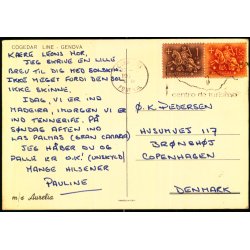 COGEDAR LINE - GENOVA
KÆRE LEONS MOR,
JEG SKRIVE EN LILLE
BREV TIL DIG MED SOLSKIN.
IKKE MEGET FORDI DEN BOL
IKKE SKINNE.
IDAG, VI ER IND
MADEIRA, IMORGEN VI ER
IND TENERIFE. PÅ
SØNDAG AFTEN IND
LAS PALMAS (GRAN CANARIA)
JEG HÅBER DU OG
PALLE ER O.K! (UNDSKYLD)
MANGE HILSENER
PAULINE
m/s Aurelia
centro de turismo
Ø. K. PEDERSEN
HUSUMVEJ 117
BRØNSHØJ
COPENHAGEN
DENMARK